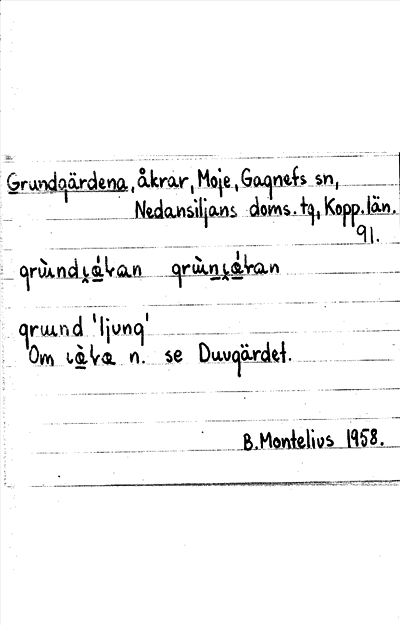 Grundgärdena, åkrar, Moje, Gagnefs sn,
Nedansiljans doms. tg, Kopp. län.
91.
grund 'ljung'
Om n. se Duvgärdet.
B. Montelius 1958.